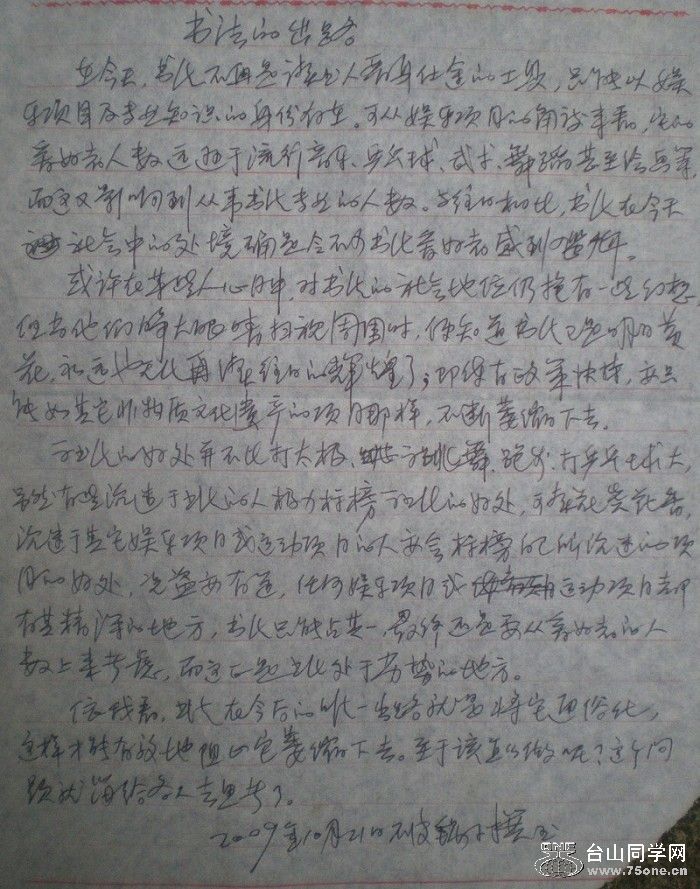 书法的出路
在今天,书法不再是读书人晋身仕途的工具,只能以娱
乐项目及专业知识的身份存在。可从娱乐项目的角度来看,它的
爱好者人数远逊于流行音乐、乒乓球、武术、舞蹈甚至绘画等,
而这又影响到从事书法专业的人数。与往日相比,书法在今天
社会中的处境确是令不少书法爱好者感到
或许在某些人心目中,对书法的社会地位仍抱有一些幻想
但当他们睁大眼睛扫视周围时,便知道书法已是明日黄
花,永远也无法再现往日的辉煌了;即使有政策扶持,亦只
能如其它非物质文化遗产的项目那样,不断萎缩下去。
书法的好处并不比打太极、跳舞、跑步、打乒乓球大
虽然有些沉迷于书法的人极力标榜书法的好处,可
沉迷于其它娱乐项目或运动项目的人亦会标榜自己所沉迷的项
目的好处,况盗亦有道,任何娱乐项目或运动项目都
有其精深的地方,书法只能占其一,最终还是要从爱好者的人
数上来考虑,而这正是书法处于劣势的地方。
依我看,书法在今后的唯一出路就是将它通俗化,
这样才能有效地阻止它萎缩下去。至于该怎么做呢?这个问
题就留给各人去思考了。
2009年10月21日
台山同学网
www.75one.cn